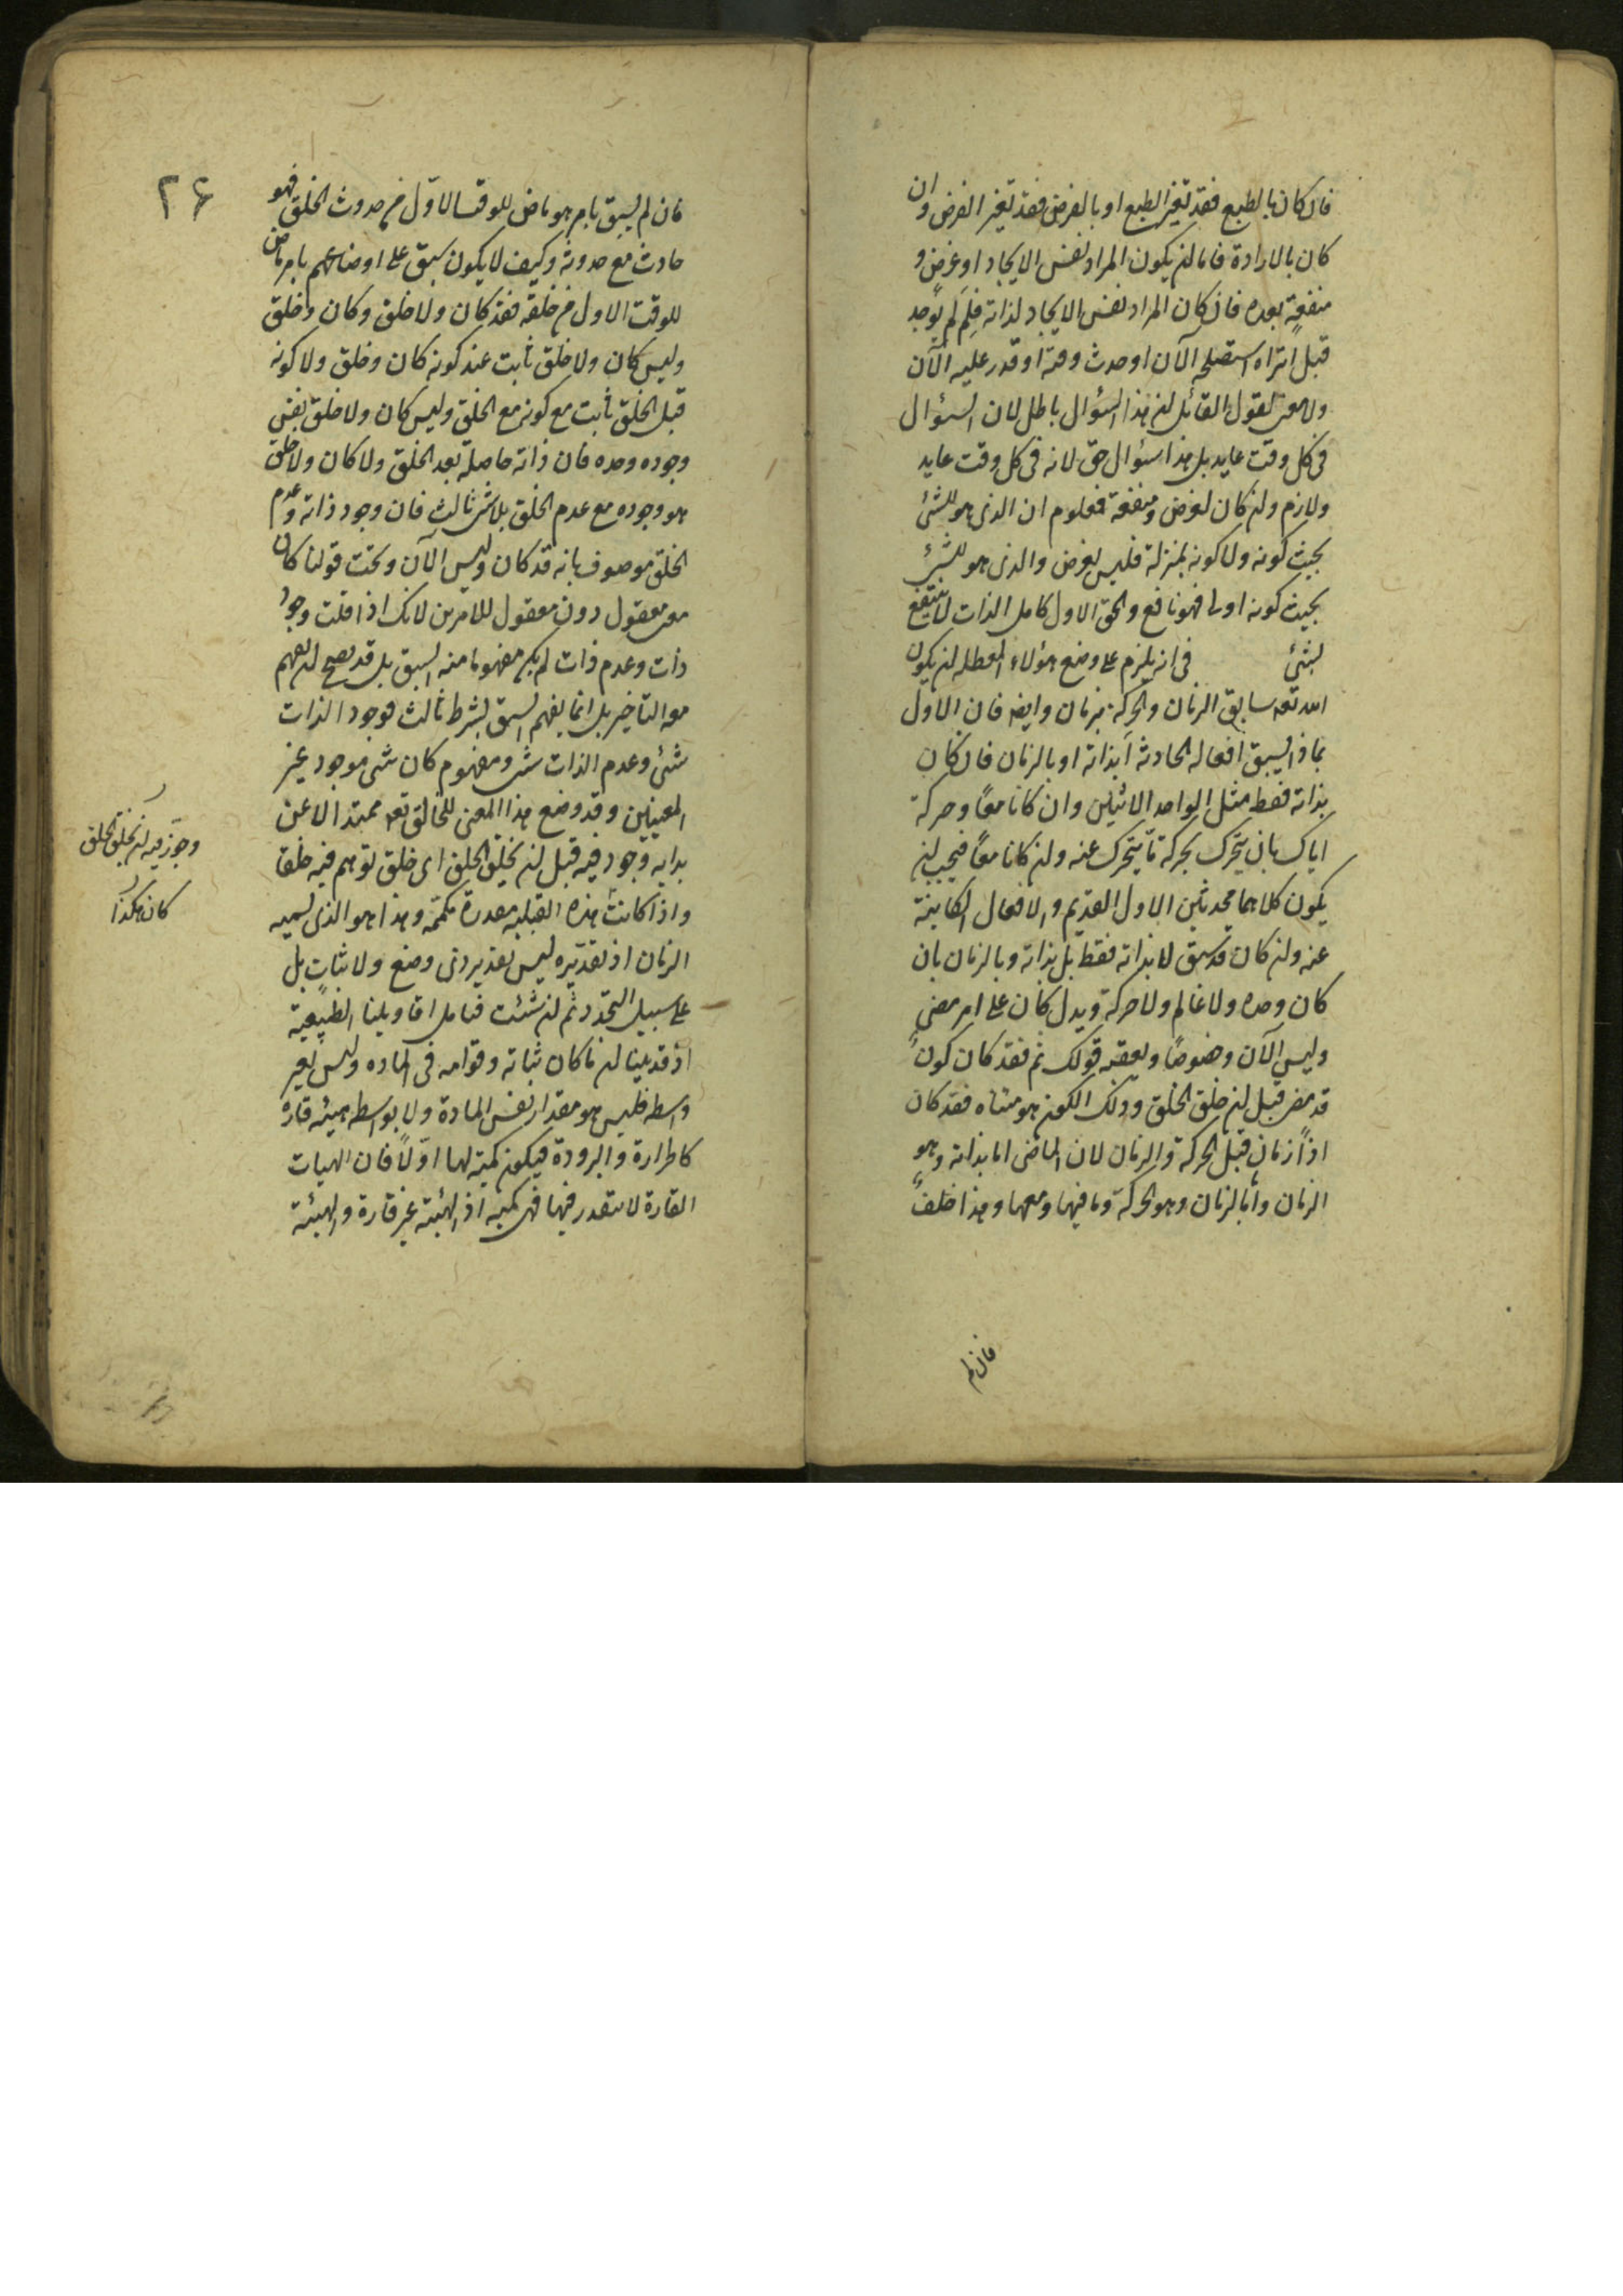 فان كان بالطبع فقد تغير الطبع او بالغرض فقد تغير الغرض وان
كان بالارادة فاما ان يكون المراد نفس الايجاد او غرض و
منفعة بعده فان كان المراد نفس الايجاد لذاته فلم لم يوجد
قبل اتراه استصلحه الآن او حدث وقته او قدر عليه الآن
ولا معنى لقول القائل ان هذا السؤال باطل لان السؤال
فى كل وقت عايد بل هذا سؤال حق لانه فى كل وقت عايد
ولازم وان كان لغرض ومنفعة فمعلوم ان الذى هو للشئ
بحيث كونه ولا كونه بمنزلة فليس بغرض والذى هو للشئ
بحيث كونه اولى فهو نافع والحق الاول كامل الذات لا ينتفع
بشئ فى انه يلزم على وضع هؤلاء المعطله ان يكون
الله تعه سابق الزمان والحركة بزمان وايضه فان الاول
بماذا يسبق افعاله الحادثة أبذاته او بالزمان فان كان
بذاته فقط مثل الواحد للاثنين وان كانا معًا وحركة
اياك بان يتحرك بحركة ما يتحرك عنه وان كانا معًا فيجب ان
يكون كلاهما محدثين الاول القديم والافعال الكاينة
عنه وان كان قد سبق لا بذاته فقط بل بذاته وبالزمان بان
كان وحده ولا عالم ولا حركة ويدل كان على امر مضى
وليس الآن وخصوصًا ويعقبه قولك ثم فقد كان كونٌ
قد مضى قبل ان خلق الخلق وذلك الكون هو متناه فقد كان
اذًا زمان قبل الحركة والزمان لان الماضى اما بذاته وهو
الزمان واما بالزمان وهو الحركة وما فيها ومعها وهذا خلفٌ
فان لم
۲۶
فان لم يسبق بامر هو ماض للوقت الاوّل من حدوث الخلق فهو
حادث مع حدوثه وكيف لا يكون سبق على اوضاعهم بامر ماض
للوقت الاول من خلقه فقد كان ولا خلق وكان وخلق
وليس كان ولا خلق ثابت عند كونه كان وخلق ولا كونه
قبل الخلق ثابت مع كونه مع الخلق وليس كان ولا خلق بنفس
وجوده وحده فان ذاته حاصلة بعد الخلق ولا كان ولا خلق
هو وجوده مع عدم الخلق بلا شئ ثالث فان وجود ذاته وعدم
الخلق موصوف بانه قد كان وليس الآن وتحت قولنا كان
معنى معقول دون معقول للامرين لانك اذا قلت وجود
ذات وعدم ذات لم يكن مفهوما منه السبق بل قد يصح ان يفهم
معه التأخير بل انما يفهم السبق بشرط ثالث فوجود الذات
شئ وعدم الذات شئ ومفهوم كان شئ موجود غير
المعنيين وقد وضع هذا المعنى للخالق تعه ممتدا لا عن
بدايه وجود فيه قبل ان يخلق الخلق اى خلق توهم فيه خلقا
وجوّز فيه ان يخلق الخلق
واذا كانت هذه القبليه مقدرة مكممّه وهذا هو الذى نسميه
كان هكذا
الزمان اذ تقديره ليس تقدير ذى وضع ولا ثبات بل
على سبيل التجدّد ثم ان شئت فتامل اقاويلنا الطبيعية
اذ قد بينا ان ما كان ثباته وقوامه فى الماده وليس بغير
واسطه فليس هو مقدار نفس المادة ولا بواسطه هيئه قارة
كالحرارة والبرودة فيكون كميته لها اوّلاً فان الهيات
القارة لا تتقدر فيها فهى كميه اذ لهيئة غير قارة والهيئة